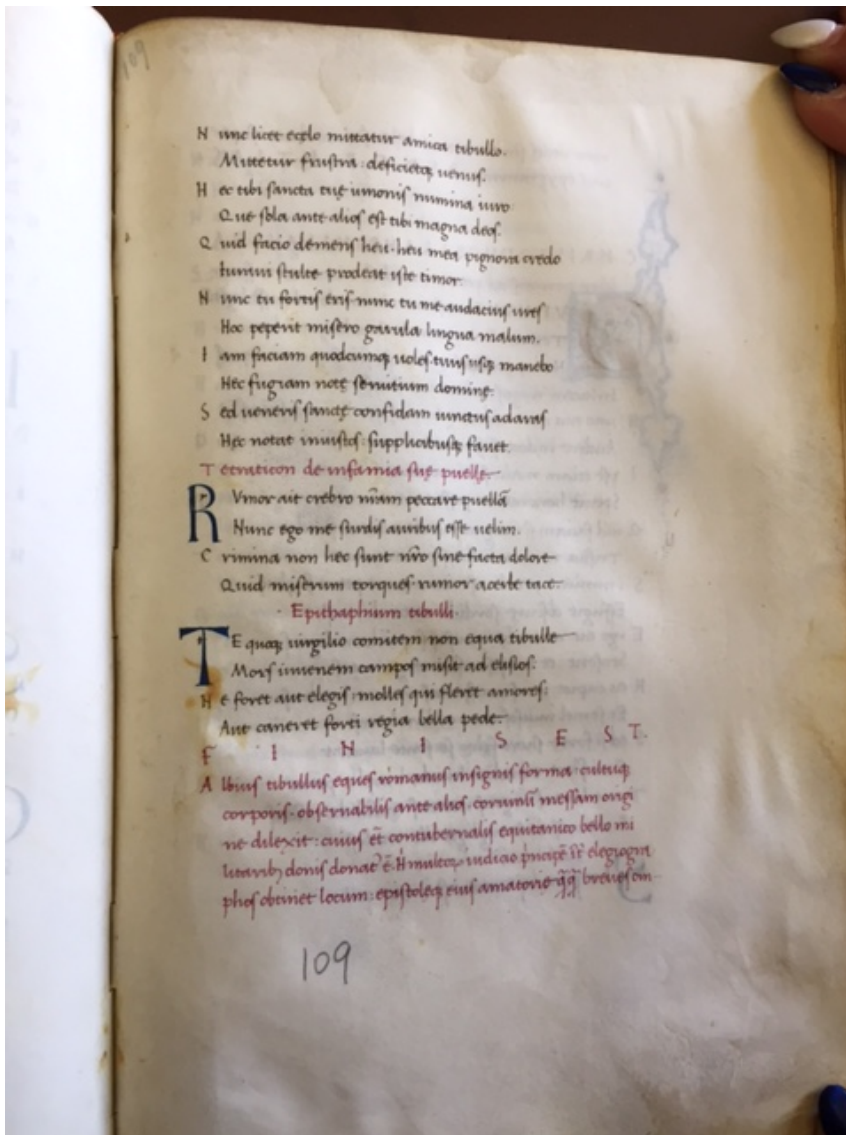 109
N unc licet ecelo mittatur amica tibullo.
Mittetur frustra: deficietq; uenus.
H ec tibi sancta tuę iunonis numina iuro
Que sola ante alios est tibi magna deos.
Q uid facio demens heu. heu mea pignora credo
Iuraui stulte proderat iste timor.
N unc tu fortis eris nunc tu me audacius ures
Hoc peperit misero garula lingua malum.
I am faciam quodcumq; uoles tuus usq; manebo
Nec fugiam notę seruitium dominę.
S ed ueneris sanctę confidam uinctus ad aras
Hec notat iniustos: supplicibusq; fauet.
T etraticon de infamia suę puellę.
R Vmor ait crebro nr̄am peccare puellā
Nunc ego me surdis auribus esse uelim.
C rimina non hec sunt nr̄o sine facta dolore
Quid miserum torques rumor acerbe tace.
· Epithaphium tibulli ·
T E quoq; uirgilio comitem non equa tibulle
Mors iuuenem campos misit ad elisios.
N e foret aut elegis molles qui fleret amores:
Aut caneret forti regia bella pede.
F I N I S E S T.
A lbius tibullus eques romanus insignis forma. cultuq;
corporis. obseruabilis ante alios. coruinū messam origi
ne dilexit: cuius et̄ contubernalis equitanico bello mi
litarib; donis donat᷒ ē. H multoꝝ iudicio pͥncipē īt̄ elegiogra
phos obtinet locum: epistoleq; eius amatorie q̄q̄ breues om
109